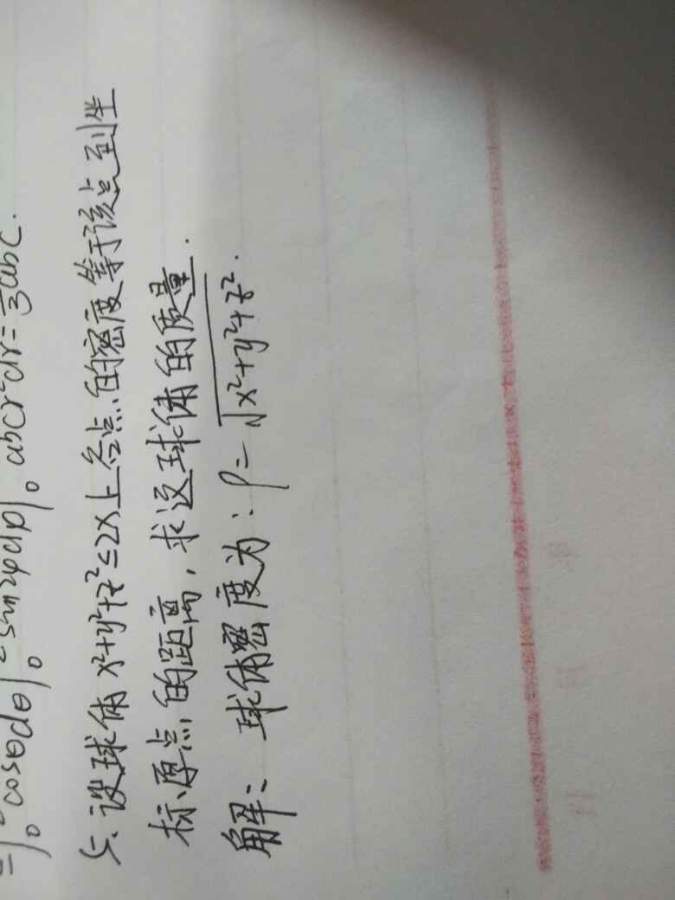 =∫₀ cosθdθ∫₀ sin2φdφ∫₀ abcr²dr=⅓abc.
5.设球体x²+y²+z²≤2x上各点的密度等于该点到坐
标原点的距离,求这球体的质量.
解:球体密度为:ρ=√x²+y²+z².